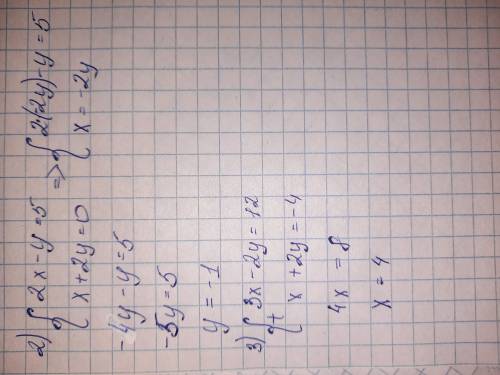 2) { 2x - y = 5 => { 2(-2y) - y = 5
x + 2y = 0 x = -2y
-4y - y = 5
-5y = 5
y = -1
3) { 3x - 2y = 12
+ x + 2y = -4
4x = 8
x = 4